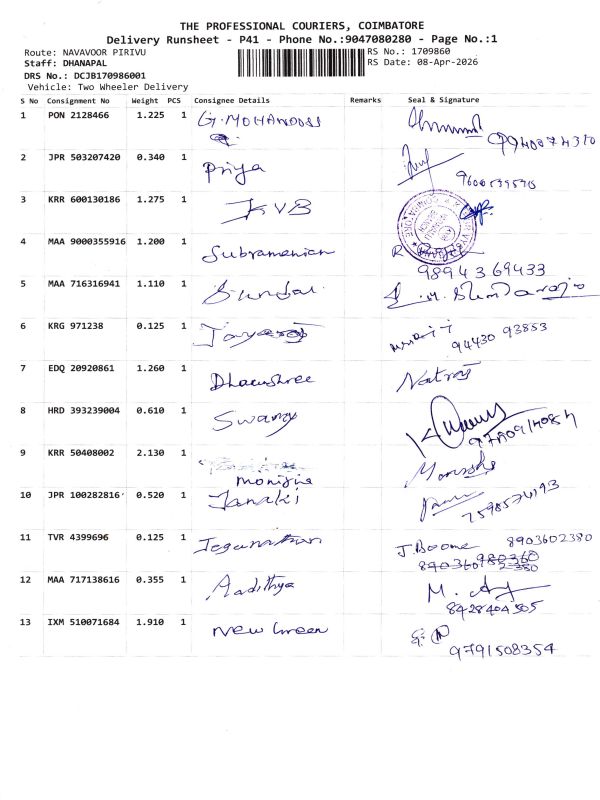 THE PROFESSIONAL COURIERS, COIMBATORE
Delivery Runsheet - P41 - Phone No.:9047080280 - Page No.:1
Route: NAVAVOOR PIRIVU RS No.: 1709860
Staff: DHANAPAL RS Date: 08-Apr-2026
DRS No.: DCJB170986001
Vehicle: Two Wheeler Delivery
S No Consignment No Weight PCS Consignee Details Remarks Seal & Signature
1 PON 2128466 1.225 1 G. MOHANDOSS
2 JPR 503207420 0.340 1 Priya
3 KRR 600130186 1.275 1 KVB
4 MAA 9000355916 1.200 1 Subramanian
9894369433
5 MAA 716316941 1.110 1
6 KRG 971238 0.125 1 94430 93853
7 EDQ 20920861 1.260 1 Dhanushree
8 HRD 393239004 0.610 1 Swamy
9 KRR 50408002 2.130 1
10 JPR 100282816 0.520 1 Janaki
7598574193
11 TVR 4399696 0.125 1 Jeganathan 8903602380
12 MAA 717138616 0.355 1 Aadithya
8428404505
13 IXM 510071684 1.910 1 New Green
9791508354